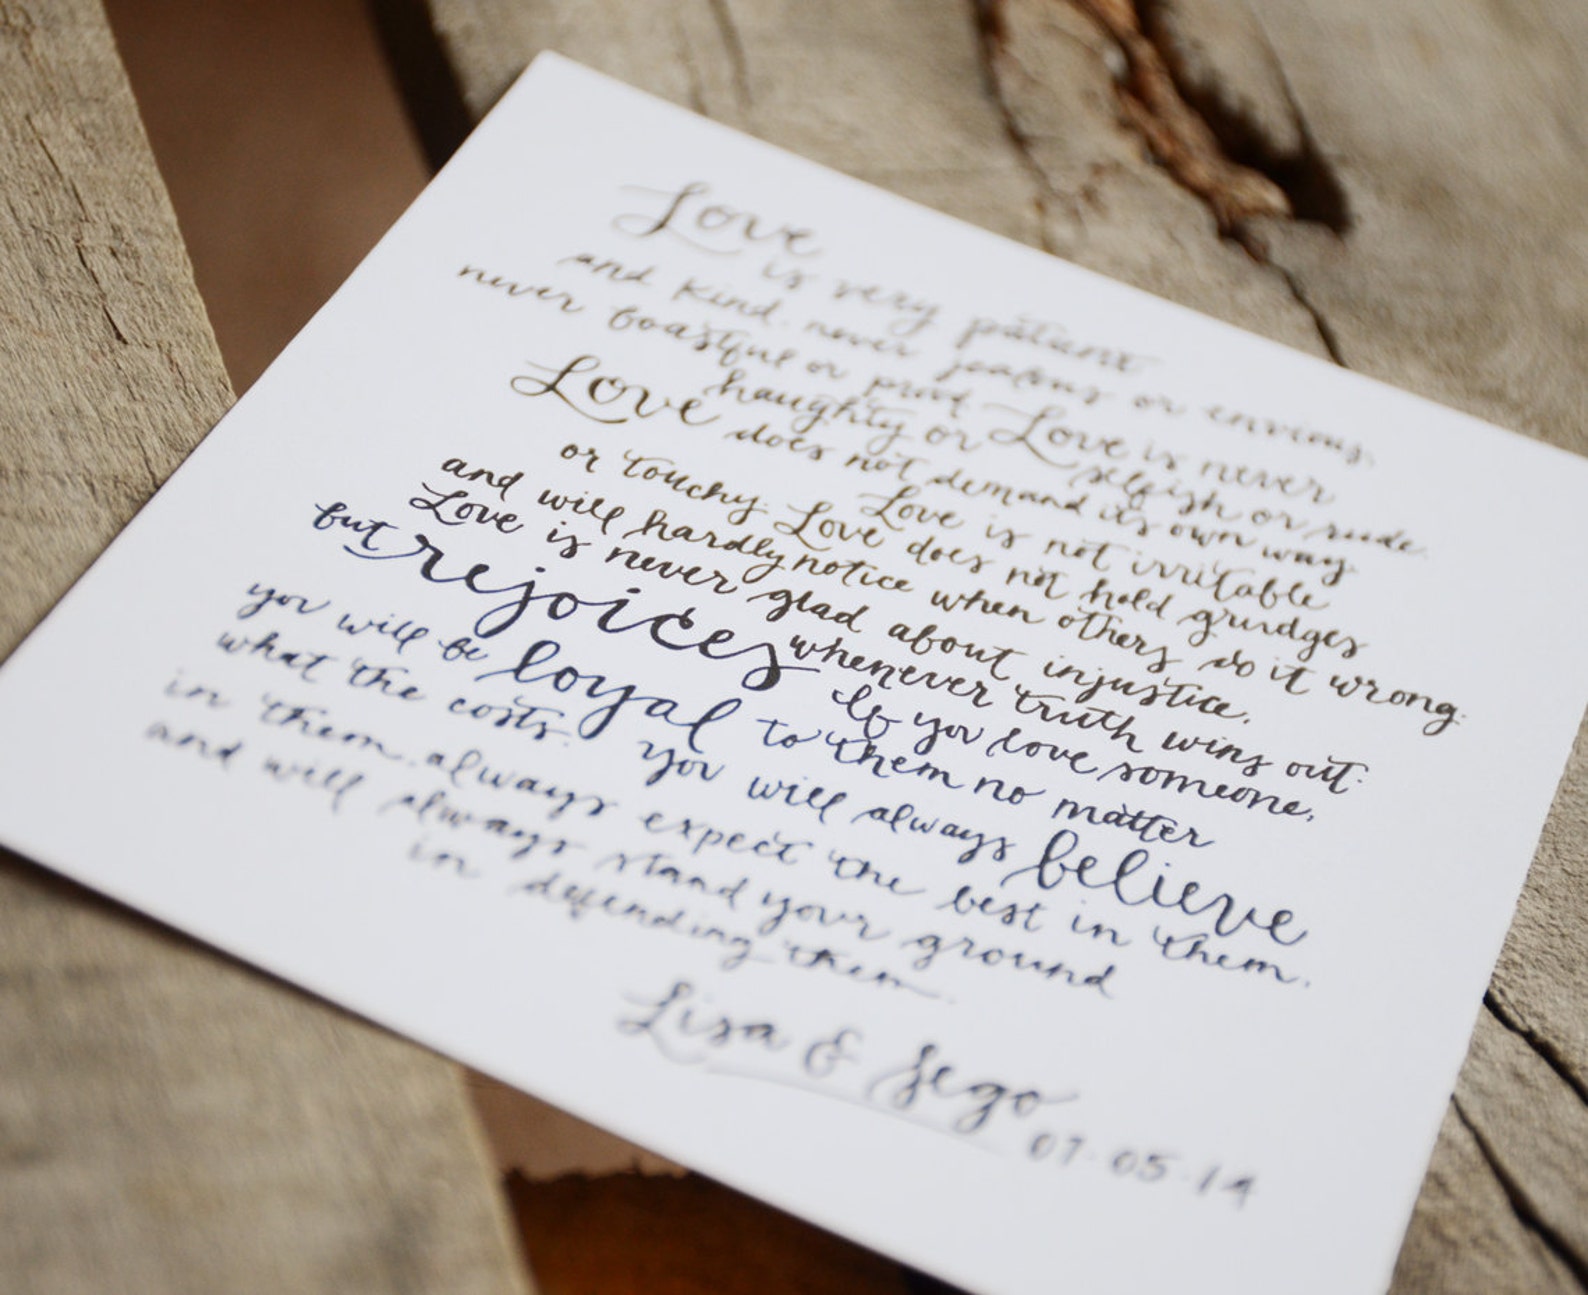 Love is very patient
and kind, never jealous or envious,
never boastful or proud. Love is never
haughty or selfish or rude.
Love does not demand its own way.
Love is not irritable
or touchy. Love does not hold grudges
and will hardly notice when others do it wrong.
Love is never glad about injustice,
but rejoices whenever truth wins out.
If you love someone,
you will be loyal to them no matter
what the costs. You will always believe
in them, always expect the best in them.
and will always stand your ground
in defending them.
Lisa & Sego
07.05.14